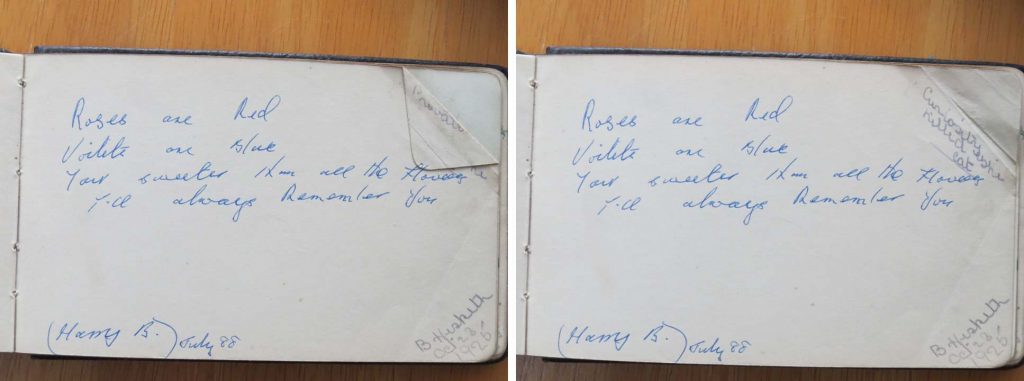 Roses are Red
Voilets are Blue
Your sweeter than all the flowers
I'll always Remember You
(Harry B.) July 88
B. Hesketh
Oct 28
1926
Roses are Red
Voilets are Blue
Your sweeter than all the flowers
I'll always Remember You
(Harry B.) July 88
Curiosity
killed the
cat
B. Hesketh
Oct 28
1926